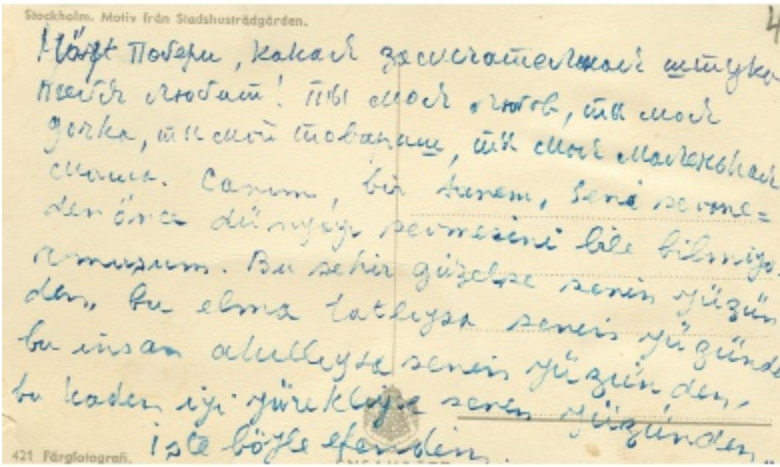 Stockholm. Motiv från Stadshusträdgården.
4
Чёрт побери, какая замечательная штука
тебя любит! ты моя любов, ты моя
дочка, ты мой товарищ, ты моя маленькая
мама. Canım, bir tanem, seni sevme=
den önce dünyayı sevmesini bile bilmiyo
rmuşum. Bu şehir güzelse senin yüzün
den, bu elma tatlıysa senin yüzünde
bu insan akıllıysa senin yüzünden,
bu kaden iyi yürekliyse senin yüzünden..
işte böyle efendim.
421 Färgfotografi.